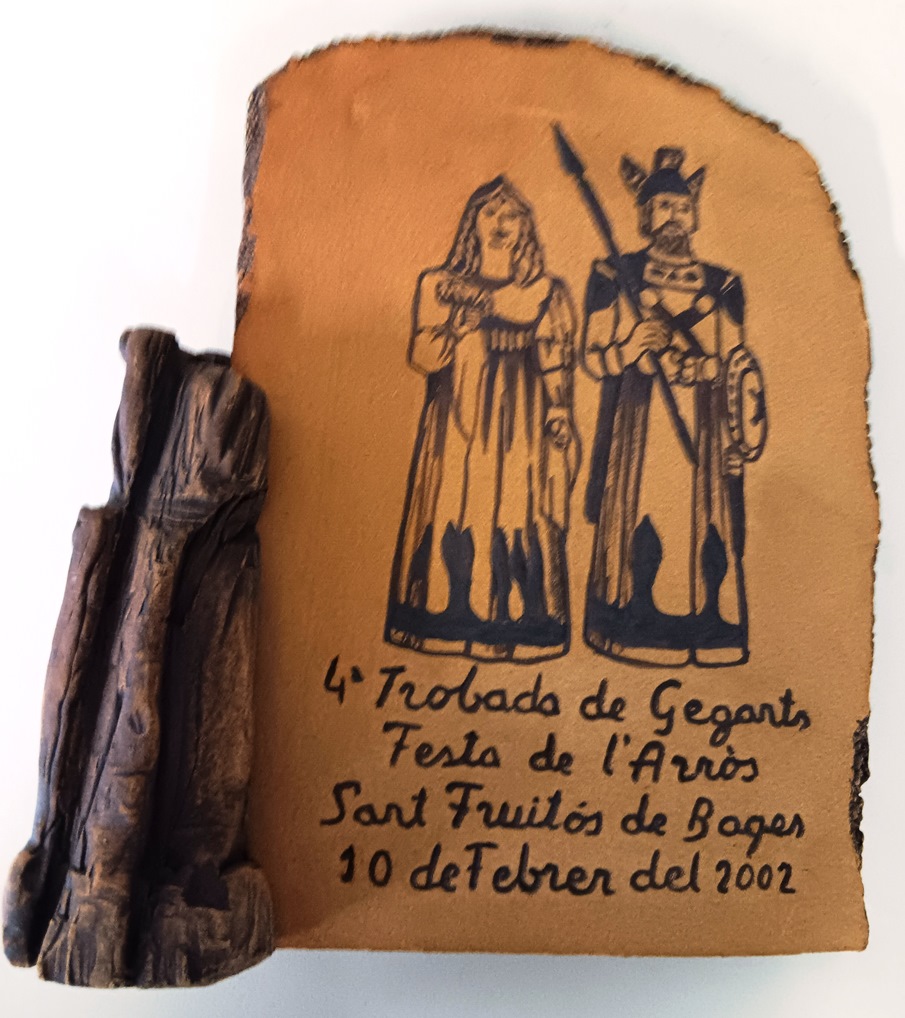 4ª Trobada de Gegants
Festa de l'Arròs
Sant Fruitós de Bages
10 de Febrer del 2002